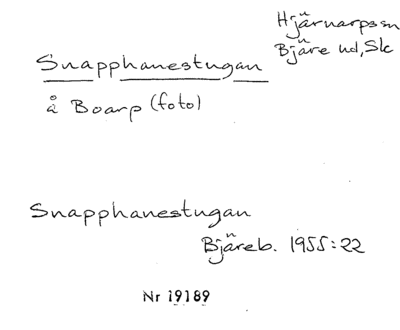 Hjärnarps sn
Bjäre hd, Sk
Snapphanestugan
å Boarp (foto)
Snapphanestugan
Bjäreb. 1955:22
Nr 19189